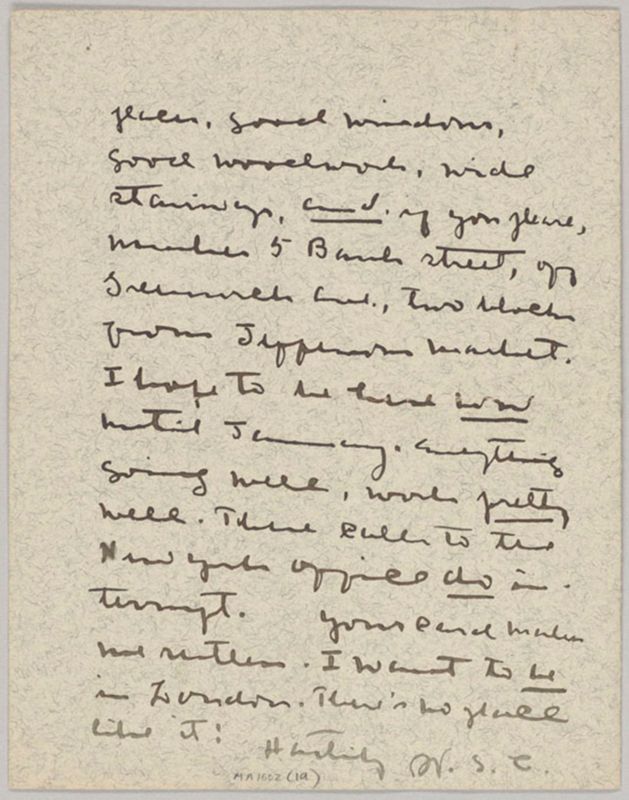 places, good windows,
good woodwork, wide
stairways, and, if you please,
number 5 Bank street, off
Greenwich Ave., two blocks
from Jefferson Market.
I hope to be here now
until January. Everything
going well, work pretty
well. These calls to the
New York office do in-
terrupt. Your card makes
me restless. I want to be
in London. There's no place
like it!
Hastily W. S. C.
MA1602 (19)